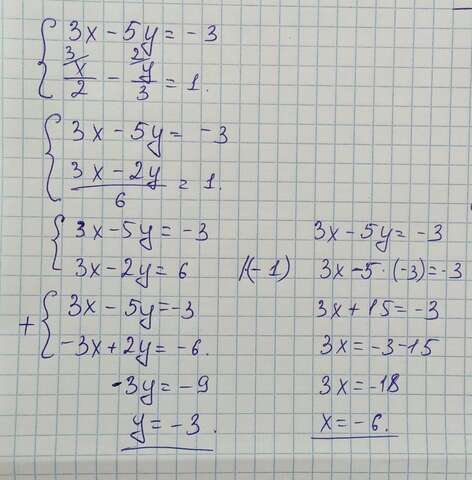 3x - 5y = -3
x/2 - y/3 = 1.
3 2
3x - 5y = -3
(3x - 2y)/6 = 1.
3x - 5y = -3
3x - 2y = 6 /·(-1)
+ 3x - 5y = -3
-3x + 2y = -6.
-3y = -9
y = -3.
3x - 5y = -3
3x - 5·(-3) = -3
3x + 15 = -3
3x = -3 - 15
3x = -18
x = -6.